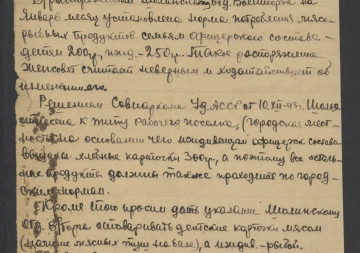 Январь месяц установлена норма потребления мясо-
рыбных продуктов семьям офицерского соста-
детям 200 гр., ижд. - 250 гр. Такое распоряжение
Женсовет считает неверным и ходатайствует об
изменении его.
Решением Совнаркома Уд. АССР от 10 XII-43 г.
отнесена к типу рабочего поселка, (городская мест
ность) на основании чего иждивенцам офицерск. состава
введены хлебные карточки 300 гр., а поэтому все
продукты должны также проходить по город-
ским нормам.
Кроме того просим дать указание
отоваривать детские карточки мясом
(наличие мясных на базе), а иждив. - рыбой.